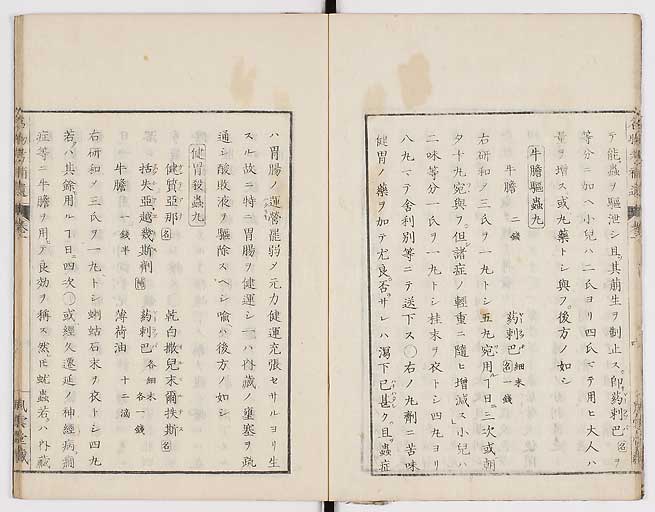 テ能蟲ヲ驅泄シ且其萠生ヲ制止ス即药剌巴名ヲ
等分ニ加ヘ小兒ハ二氏ヨリ四氏マテ用ヒ大人ハ
量ヲ増ス或丸藥トシ與フ後方ノ如シ
牛膽驅蟲丸
牛膽 二錢 药剌巴細末名一錢
右研和ノ三氏ヲ一丸トシ五丸宛用ル丅日三次或朝
夕十丸宛與フ但諸症ノ輕重ニ隨ヒ増減ス小兒ハ
二味等分一氏ヲ一丸トシ桂末ヲ衣トシ四丸ヨリ
八九マテ舎利別等ニテ送下ス〇右ノ丸劑ニ苦味
健胃ノ藥ヲ加テ尤良否サレハ瀉下已甚ク且蟲症
ハ胃腸ノ運營罷弱ノ元力健運充張セサルヨリ生
スル故ニ特ニ胃腸ヲ健運シ一ハ内藏ノ壅塞ヲ疏
通シ酸敗液ヲ驅除スヘシ喩ハ後方ノ如シ
健胃殺蟲丸
健質亞那名 乾白撒兒末爾扶斯名
括失亞越幾斯劑 药剌巴 各細末 各一錢
牛膽 一錢半 薄荷油 十二滴
右研和ノ三氏ヲ一丸トシ蜊蛄石末ヲ衣トシ四丸
若ハ其餘用ル丅日四次〇或經久遷延ノ神經病癇
症等ニ牛膽ヲ用テ良効ヲ稱ス然モ蚘蟲若ハ内藏